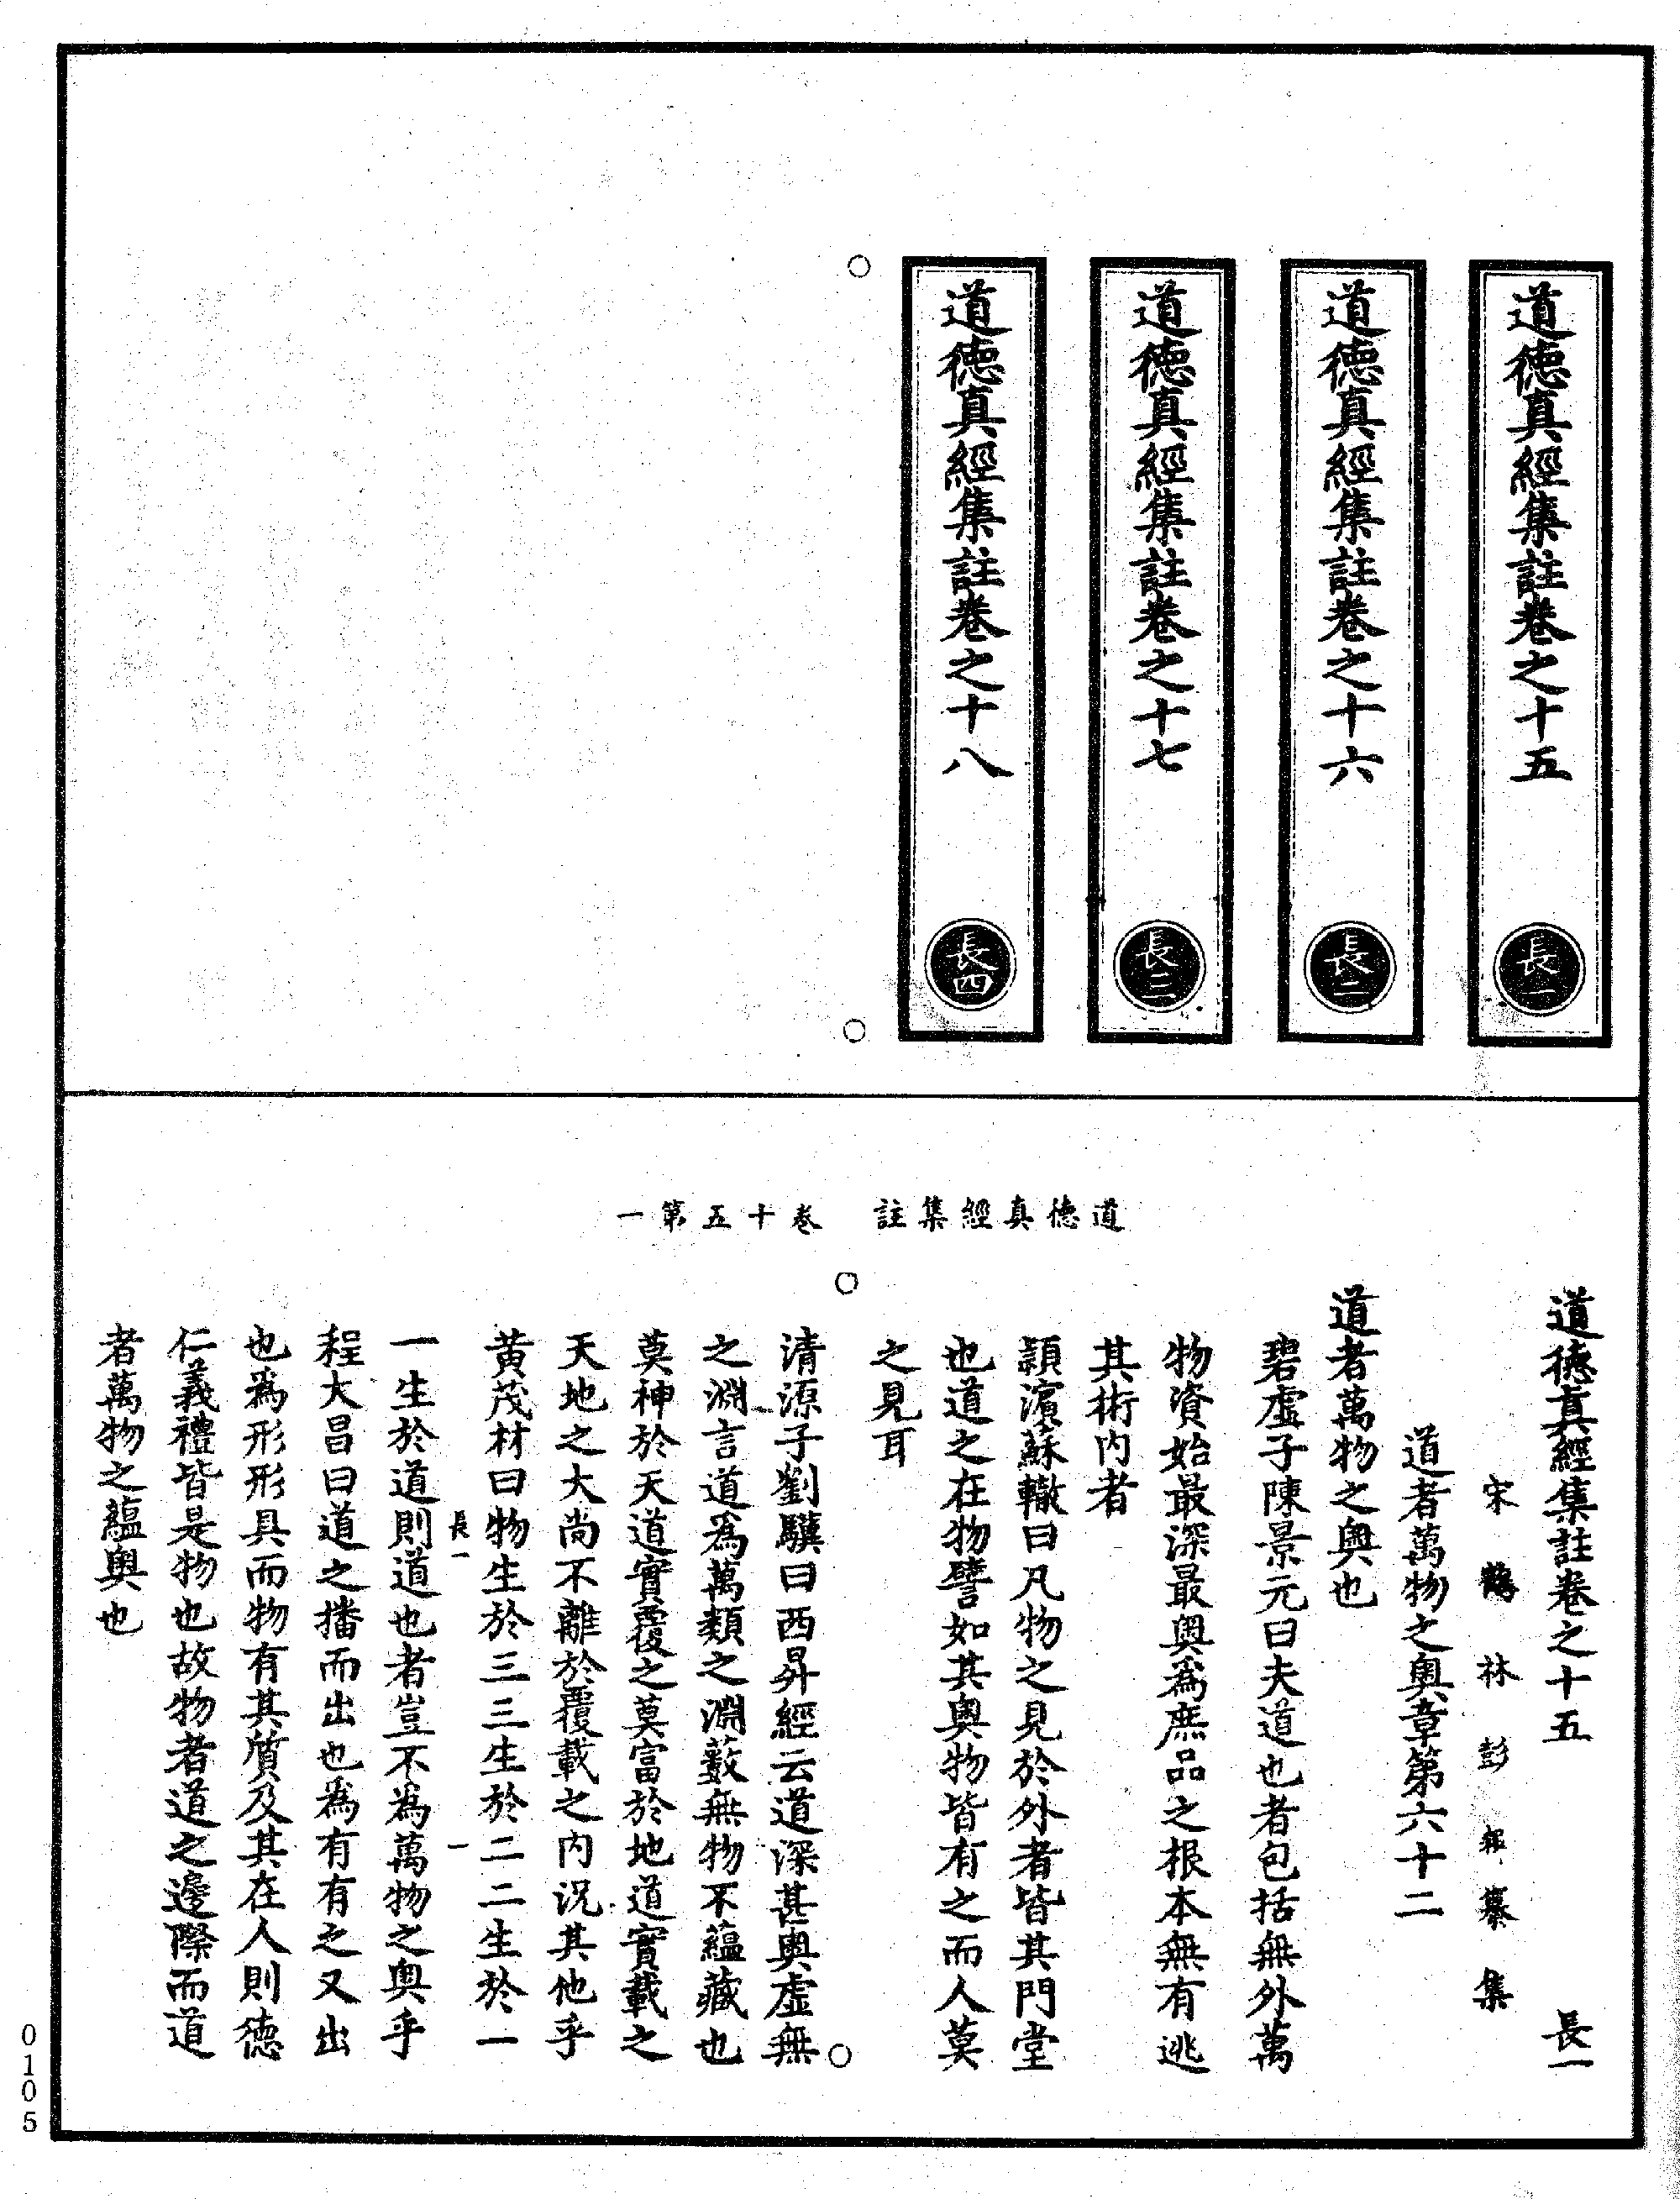 道德真經集註卷之十五 長一
道德真經集註卷之十六 長二
道德真經集註卷之十七 長三
道德真經集註卷之十八 長四
道德真經集註 卷十五第一
道德真經集註卷之十五 長一
宋鶴林彭耜纂集
道者萬物之奧章第六十二
道者萬物之奧也
碧虛子陳景元曰夫道也者包括無外萬
物資始最深最奧為庶品之根本無有逃
其術内者
頴濱蘇轍曰凡物之見於外者皆其門堂
也道之在物譬如其奧物皆有之而人莫
之見耳
清源子劉驥曰西昇經云道深甚奧虛無
之淵言道為萬類之淵藪無物不蘊藏也
莫神於天道實覆之莫富於地道實載之
天地之大尚不離於覆載之内況其他乎
黃茂材曰物生於三三生於二二生於一
長一 一
一生於道則道也者豈不為萬物之奧乎
程大昌曰道之播而出也為有有之又出
也為形形具而物有其質及其在人則德
仁義禮皆是物也故物者道之邊際而道
者萬物之蘊奧也
0105